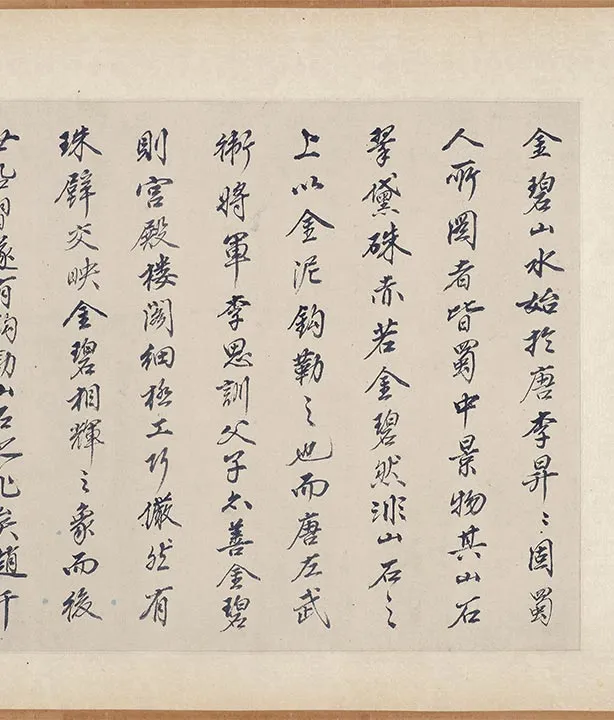 金碧山水始扵唐李昇〻固蜀
人所圖者皆蜀中景物其山石
翠黛硃赤若金碧然非山石之
上以金泥鈎勒之也而唐左武
衛將軍李思訓父子亦善金碧
則宮殿楼閣細極工巧儼然有
珠璧交映金碧相輝之象而後
世習遂有鈎勒山石之矣趙千